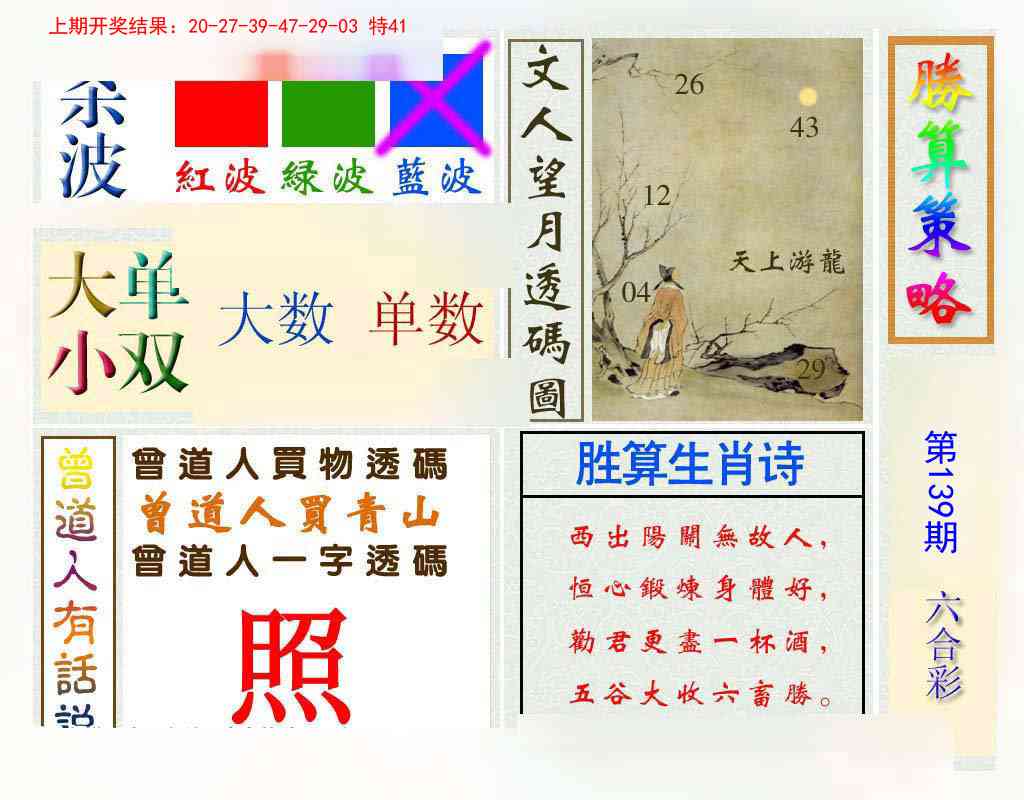 上期开奖结果：20-27-39-47-29-03 特41
波
紅波 緑波 藍波
大单
小双
大数 单数
文人望月透碼圖
26
43
12
天上游龍
04
29
勝算策略
第139期
六合彩
曾道人有話説
曾道人買物透碼
曾道人買青山
曾道人一字透碼
照
胜算生肖诗
西出陽關無故人，
恒心鍛煉身體好，
勸君更盡一杯酒，
五谷大收六畜勝。